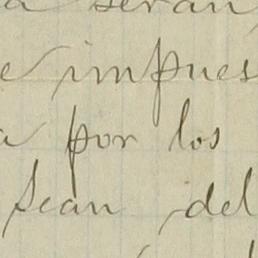 a seran
e impues
a por los
sean del